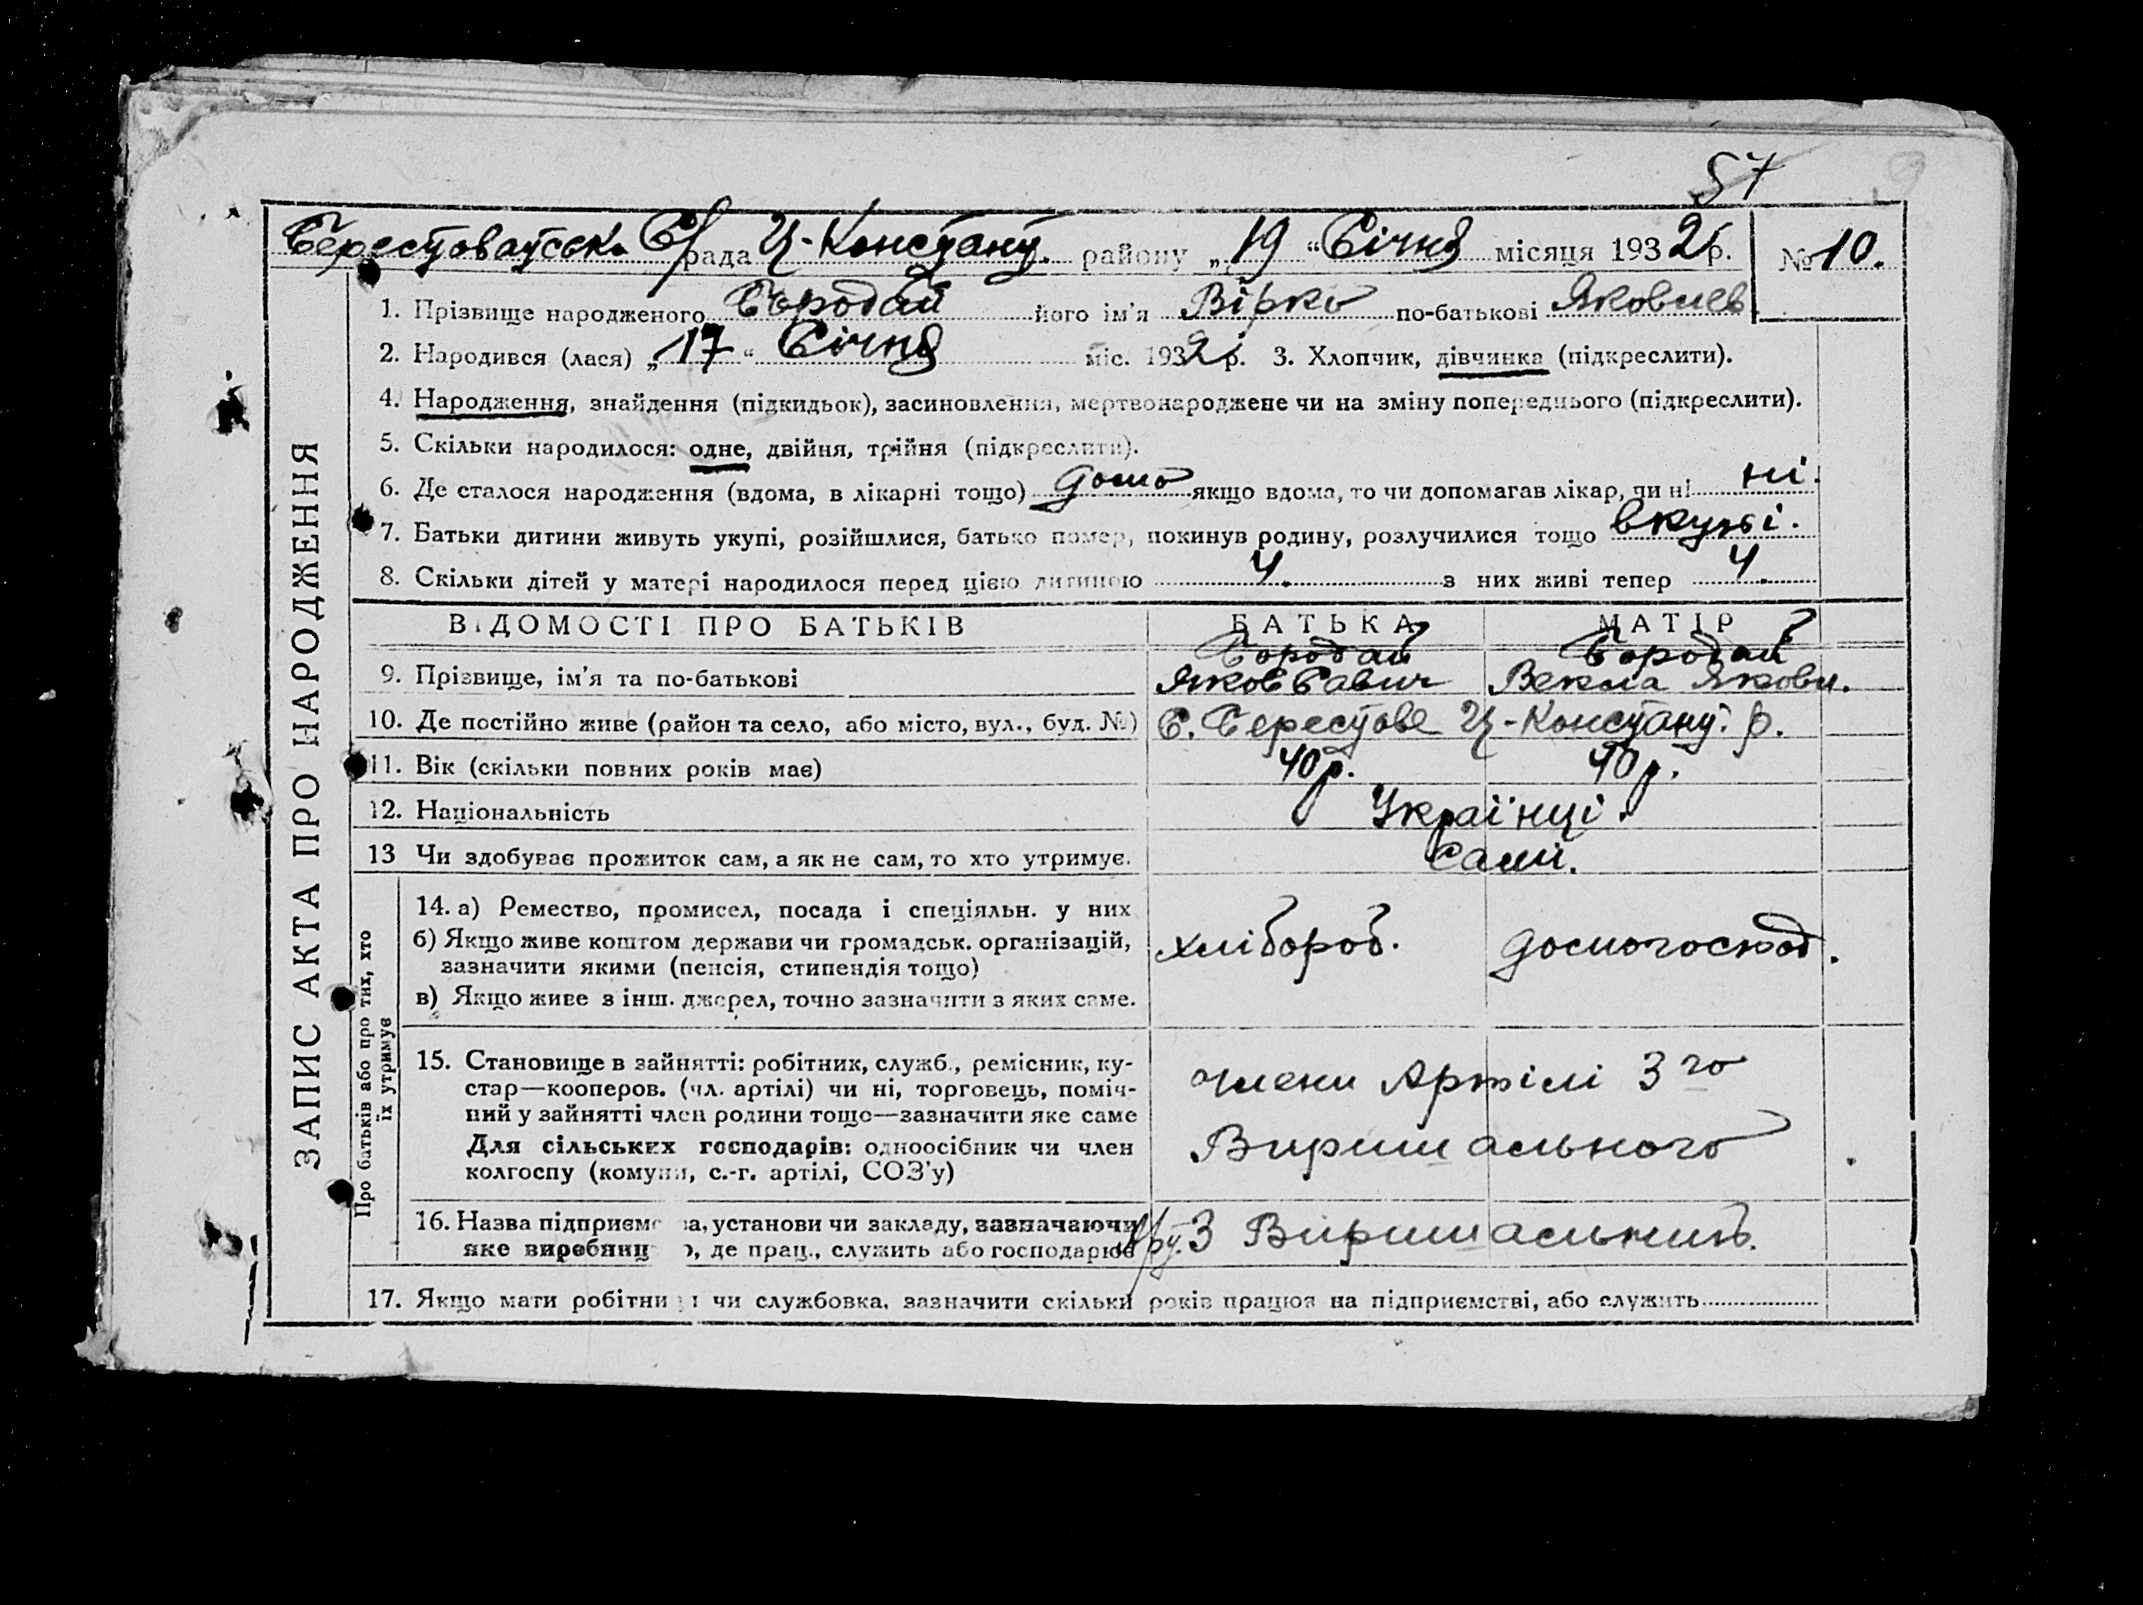 57
Берестоватськ. С/рада Ц-Констант. району „19“ Січня місяця 1932 р. № 10.
1. Прізвище народженого Бородай його ім'я Вірка по-батькові Яковлев.
2. Народився (лася) „17“ Січня міс. 1932 р. 3. Хлопчик, дівчинка (підкреслити).
4. Народження, знайдення (підкидьок), засиновлення, мертвонароджене чи на зміну попереднього (підкреслити).
5. Скільки народилося: одне, двійня, трійня (підкреслити).
6. Де сталося народження (вдома, в лікарні тощо) дома якщо вдома, то чи допомагав лікар, чи ні ні.
7. Батьки дитини живуть укупі, розійшлися, батько помер, покинув родину, розлучилися тощо вкупі.
8. Скільки дітей у матері народилося перед цією дитиною 4. з них живі тепер 4.
ВІДОМОСТІ ПРО БАТЬКІВ БАТЬКА МАТІР
Бородай Бородай
9. Прізвище, ім'я та по-батькові Яков Савич Векла Яковл.
10. Де постійно живе (район та село, або місто, вул., буд. №) С. Берестове Ц-Констант. р.
11. Вік (скільки повних років має) 40 р. 40 р.
12. Національність Українці.
13 Чи здобуває прожиток сам, а як не сам, то хто утримує. Самі.
14. а) Ремество, промисел, посада і спеціяльн. у них
б) Якщо живе коштом держави чи громадськ. організацій, хлібороб. домогоспод.
зазначити якими (пенсія, стипендія тощо)
в) Якщо живе з інш. джерел, точно зазначити з яких саме.
15. Становище в зайнятті: робітник, служб., ремісник, ку-
стар—кооперов. (чл. артілі) чи ні, торговець, поміч- члени Артілі 3го
ний у зайнятті член родини тощо—зазначити яке саме
Для сільських господарів: одноосібник чи член Вирішального
колгоспу (комуни, с.-г. артілі, СОЗ'у)
16. Назва підприємства, установи чи закладу, зазначаючи 3 Вирішальний.
яке виробниц , де прац., служить або господарює
17. Якщо мати робітниця чи службовка, зазначити скільки років працює на підприємстві, або служить
ЗАПИС АКТА ПРО НАРОДЖЕННЯ
Про батьків або про тих, хто
їх утримує